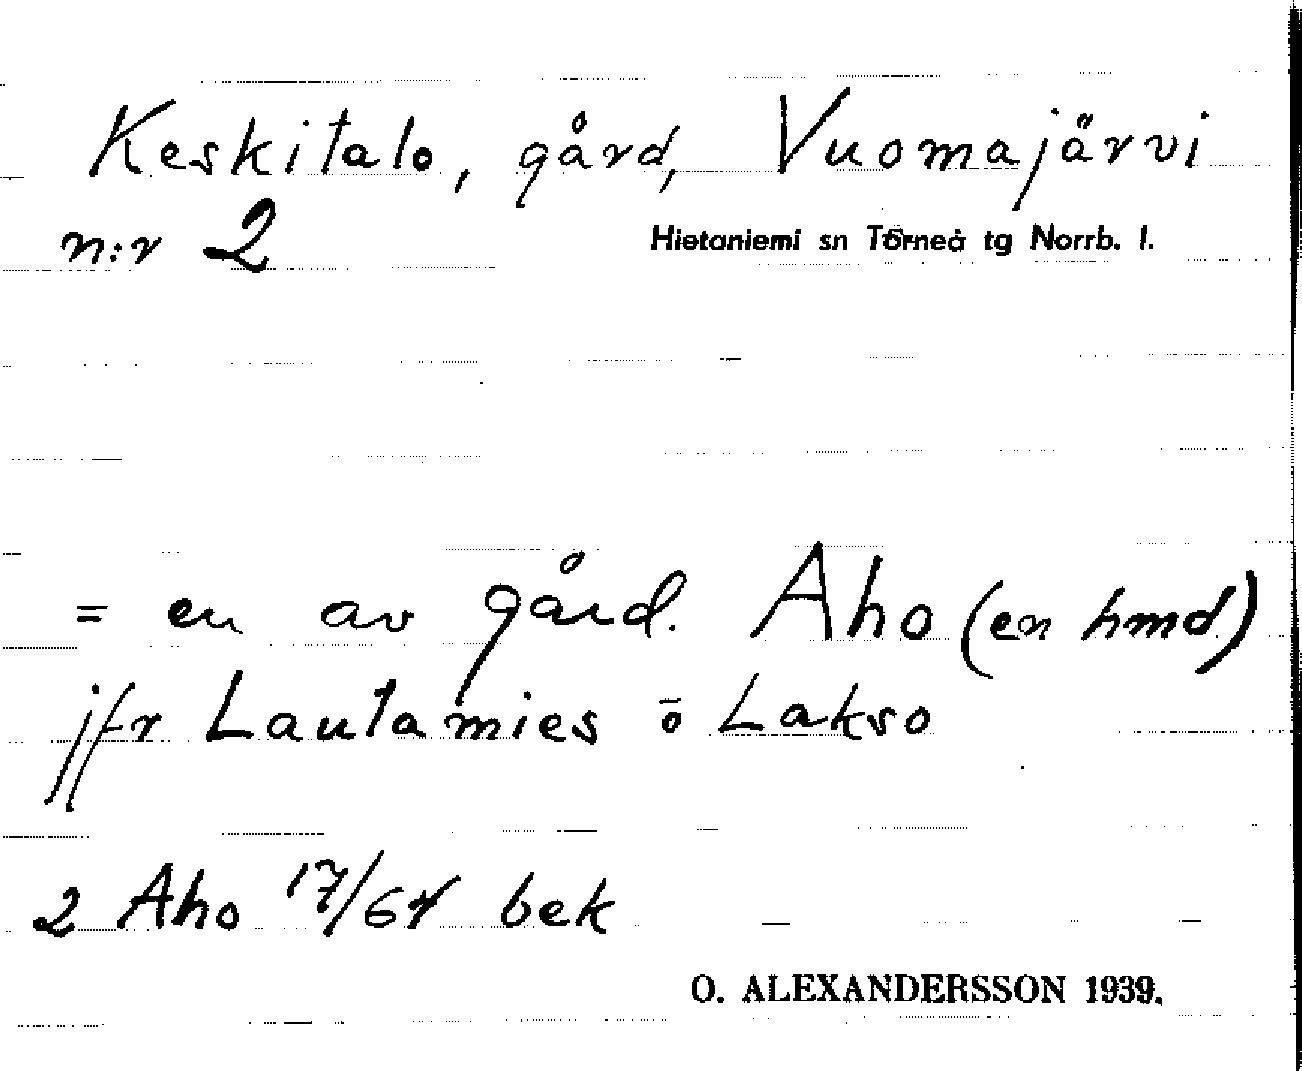 Keskitalo, gård, Vuomajärvi
n:r 2 Hietaniemi sn Torneå tg Norrb. l.
= en av gård. Aho (en hmd)
jfr Lautamies o Lakso
2 Aho 17/64 bek
O. ALEXANDERSSON 1939.